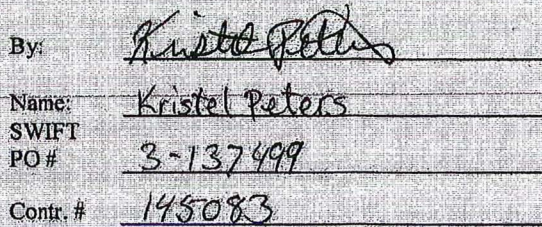 By: Kristel Peters
Name: Kristel Peters
SWIFT
PO # 3-137499
Contr. # 145083